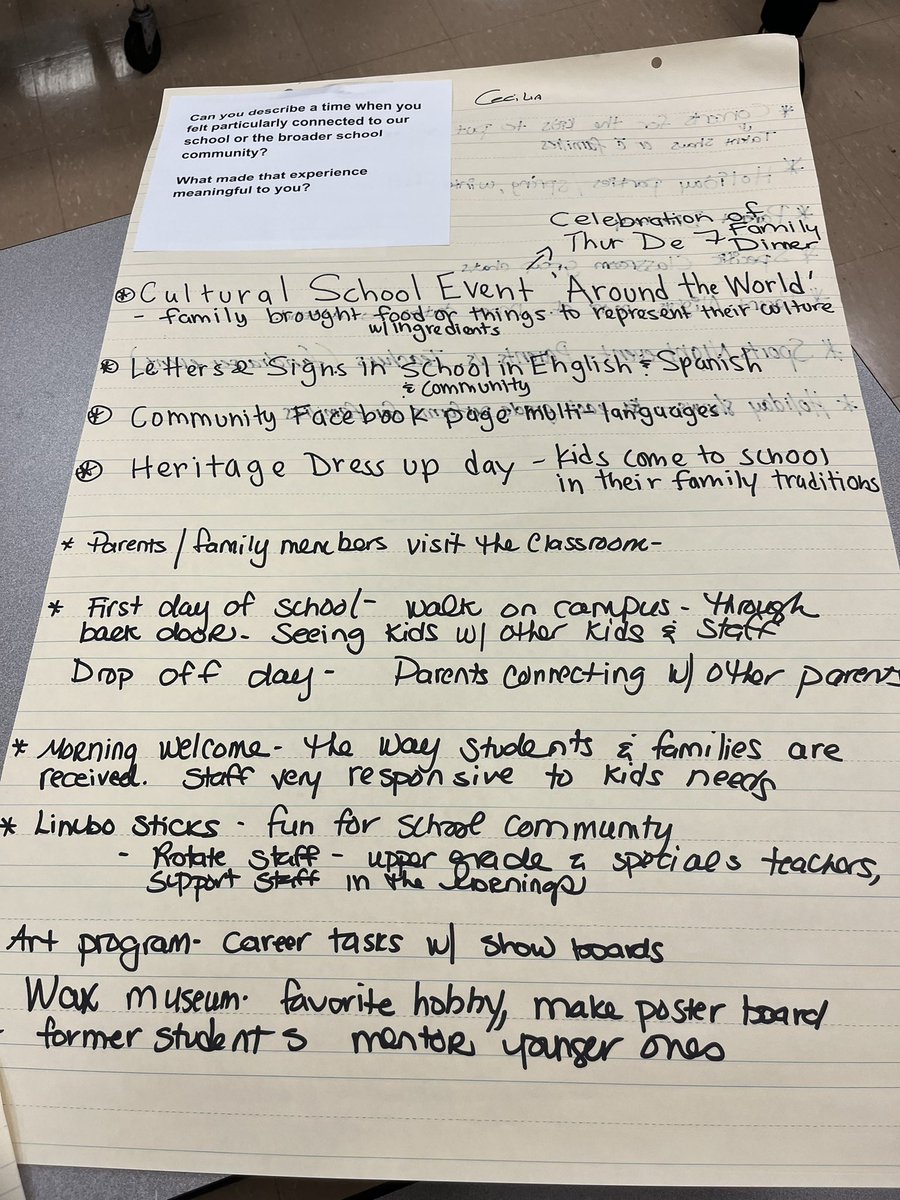 Can you describe a time when you
felt particularly connected to our
school or the broader school
community?
What made that experience
meaningful to you?
Cecilia
Celebration of
Thur De 7 Family
Dinner
* Cultural School Event 'Around the World'
- family brought food or things to represent their culture
w/ingredients
* Letters & Signs in school in English & Spanish
& community
* Community Facebook page multi languages
* Heritage Dress up day - kids come to school
in their family traditions
* Parents / family members visit the classroom-
* First day of school- walk on campus - through
back door. Seeing kids w/ other kids & staff
Drop off day - Parents connecting w/ other parents
* Morning welcome - the way students & families are
received. Staff very responsive to kids needs
* Limbo sticks - fun for school community
- Rotate staff - upper grade & specials teachers,
support staff in the mornings
Art program- career tasks w/ show boards
Wax museum- favorite hobby, make poster board
- former students mentor younger ones